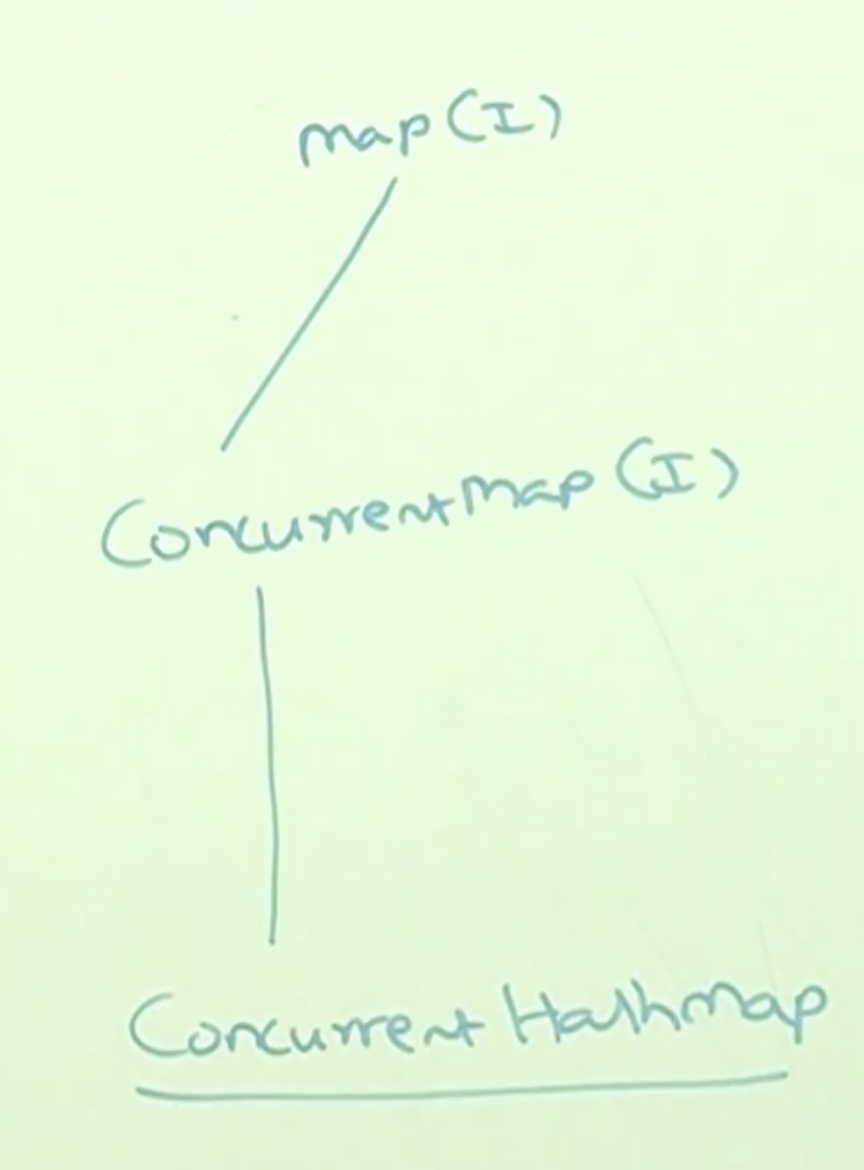 map (I)
Concurrentmap (I)
Concurrent Hashmap